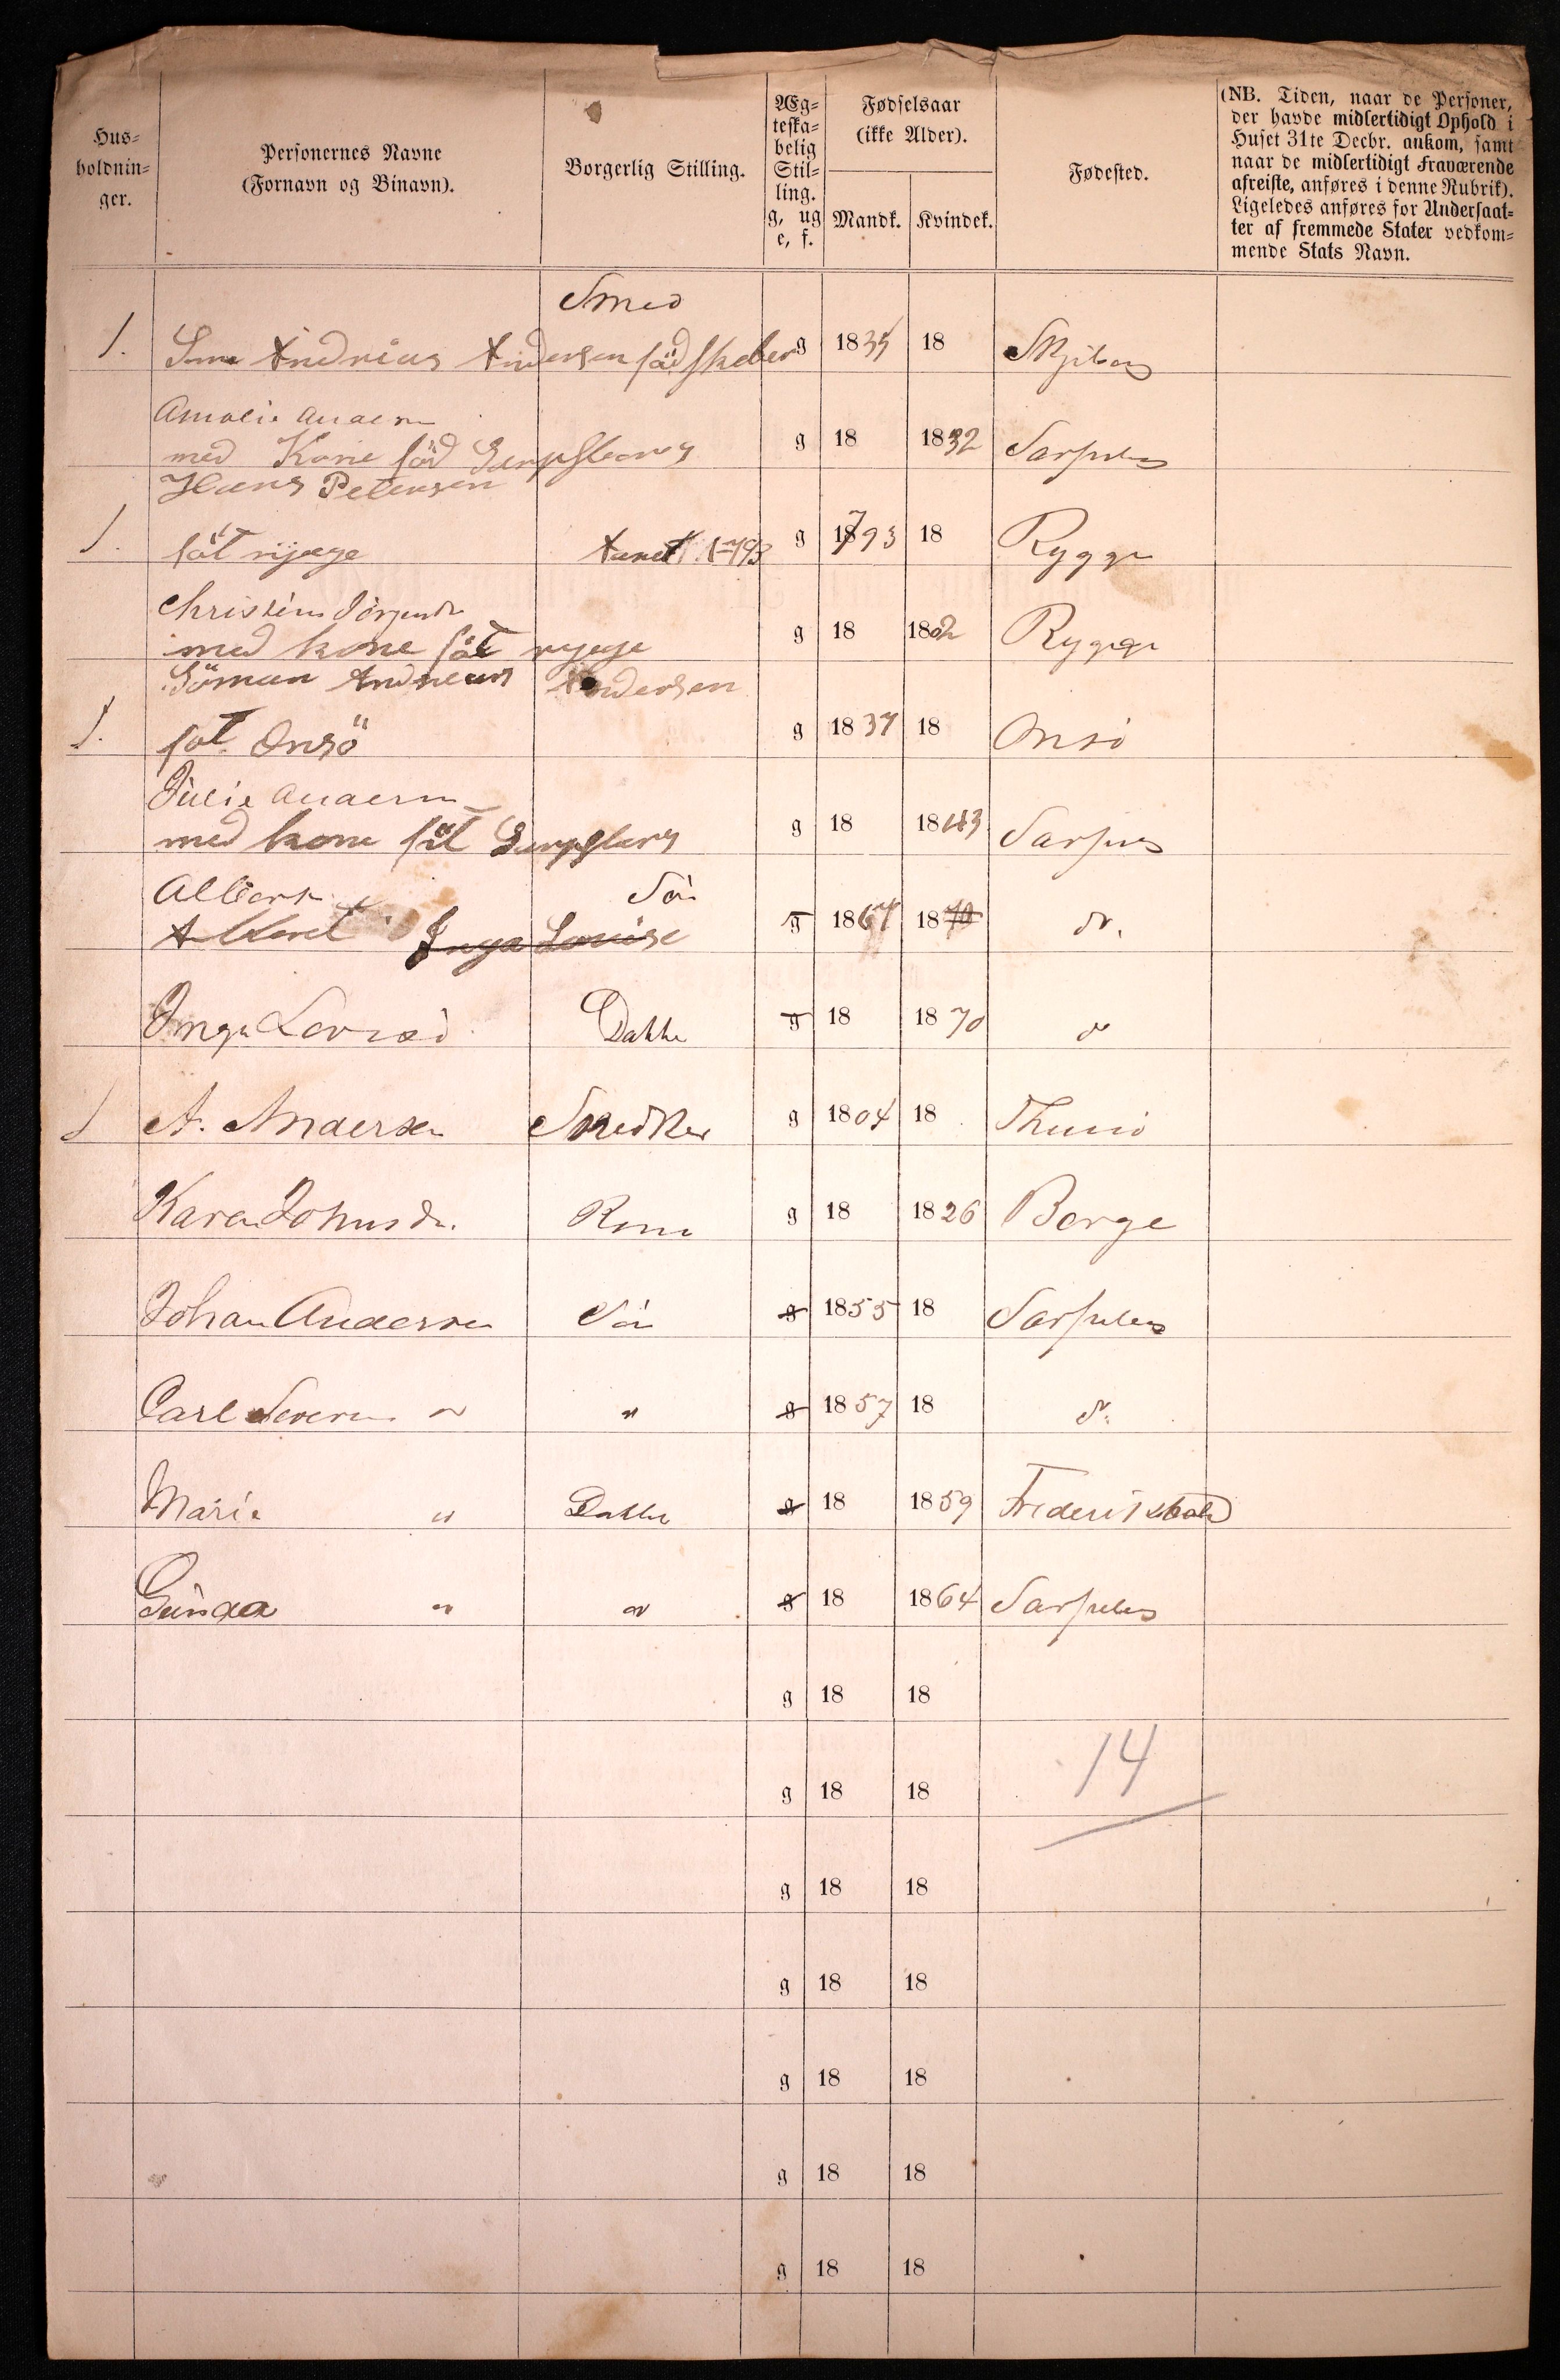 Hus-
holdnin-
ger.
Personernes Navne
(Fornavn og Binavn).
Borgerlig Stilling.
Æg-
teska-
belig
Stil-
ling.
g, ug
e, f.
Fødselsaar
(ikke Alder).
Mandk. Kvindek.
Fødested.
(NB. Tiden, naar de Personer,
der havde midlertidigt Ophold i
Huset 31te Decbr. ankom, samt
naar de midlertidigt Fraværende
afreiste, anføres i denne Rubrik).
Ligeledes anføres for Undersaat-
ter af fremmede Stater vedkom-
mende Stats Navn.
Smed
1. Andreas Andersen föd g 1835 18 Skjeberg
Amalie Andersen
med Kone föd Sarpsborg g 18 1832 Sarpsborg
Hans Petersen
1. föt rygge 1793 g 1793 18 Rygge
Christine
med kone föt rygge g 18 1802 Rygge
Söman Andreas Andersen
1. föt Onsö g 1837 18 Onsö
Julie Andersen
med kone föt Sarpsborg g 18 1843 Sarpsborg
Albert Sön
Inga Louise g 1867 1870 do
Inga Datter g 18 1870 do
1 A. Andersen Snedker g 1804 18 Thunö
Karen Johnsdr. Kone g 18 1826 Borge
Johan Andersen Sön g 1855 18 Sarpsborg
Carl Severin " " g 1857 18 do
Marie " Datter g 18 1859 Frederikshald
Gunda " " g 18 1864 Sarpsborg
g 18 18
g 18 18 14
g 18 18
g 18 18
g 18 18
g 18 18
g 18 18